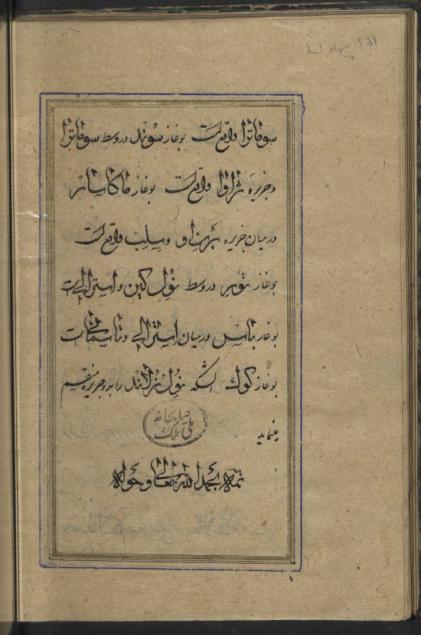 ۱۵۱
سوماترا واقع است بوغاز سوند در وسط سوماترا
و جزیره ژاوا واقع است بوغاز ماکاسار
در میان جزیره برنئو و سلب واقع است
بوغاز تورس در وسط نول کینه و استرالی است
بوغاز باس در میان استرالی و تاسمانی است
بوغاز کوک آنکه نول زلاند را به دو جزیره منقسم
مینماید
کتابخانه ملی ملک
تمة بحمدالله تعالی و حوله